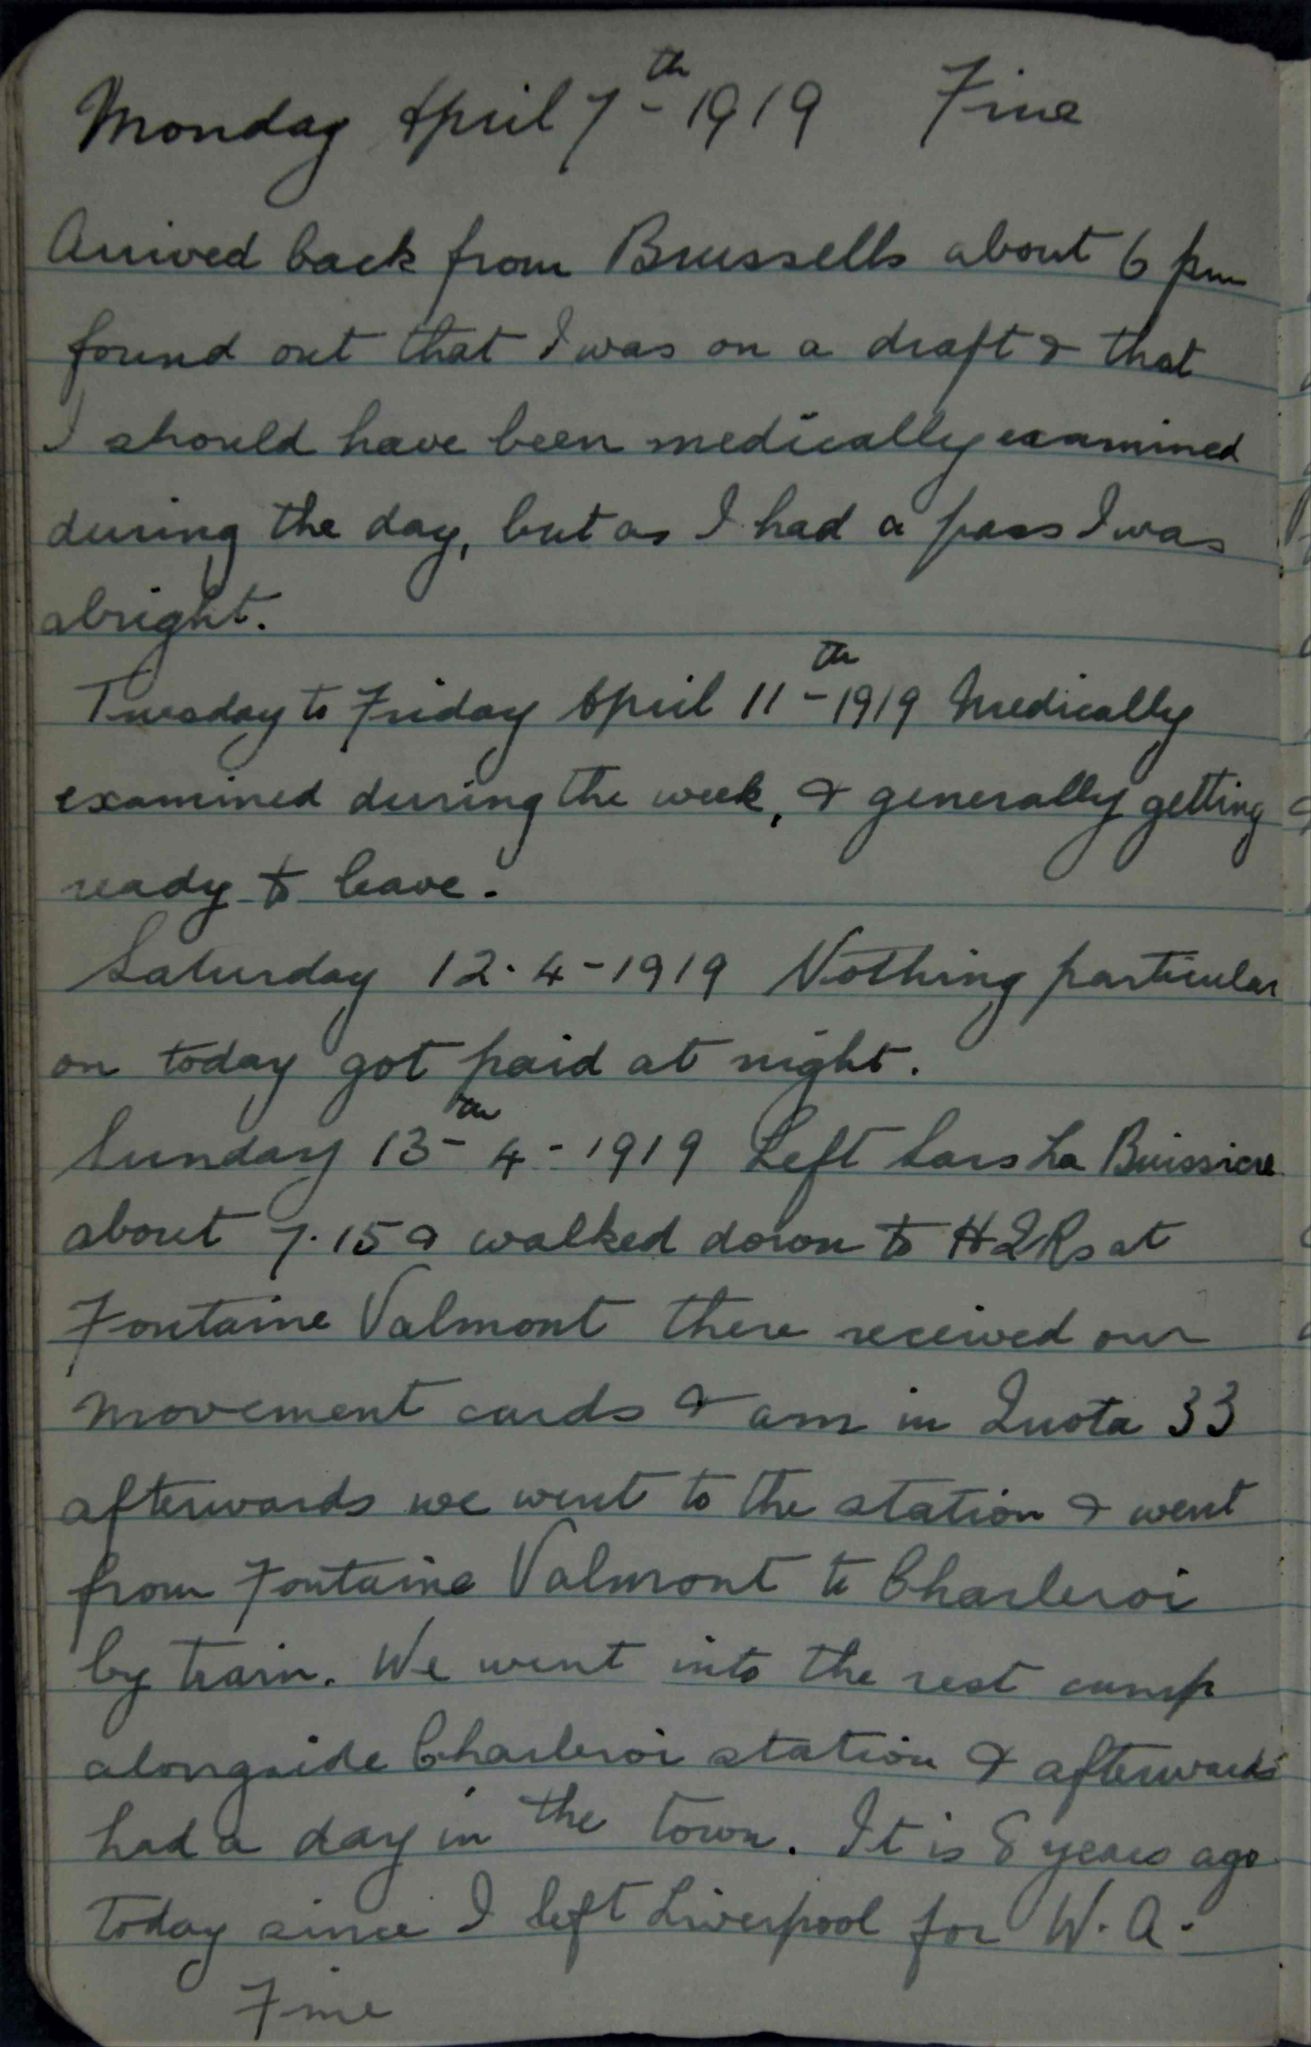 Monday April 7th 1919 Fine
Arrived back from Brussells about 6 pm
found out that I was on a draft & that
I should have been medically examined
during the day, but as I had a pass I was
alright.
Tuesday to Friday April 11th-1919 Medically
examined during the week, & generally getting
ready to leave.
Saturday 12.4-1919 Nothing particular
on today got paid at night.
Sunday 13th-4-1919 Left Sars La Buissiere
about 7.15 & walked down to HQRs at
Fontaine Valmont there received our
movement cards & am in Quota 33
afterwards we went to the station & went
from Fontaine Valmont to Charleroi
by train. We went into the rest camp
alongside Charleroi station & afterwards
had a day in the town. It is 8 years ago
today since I left Liverpool for W.A.
Fine